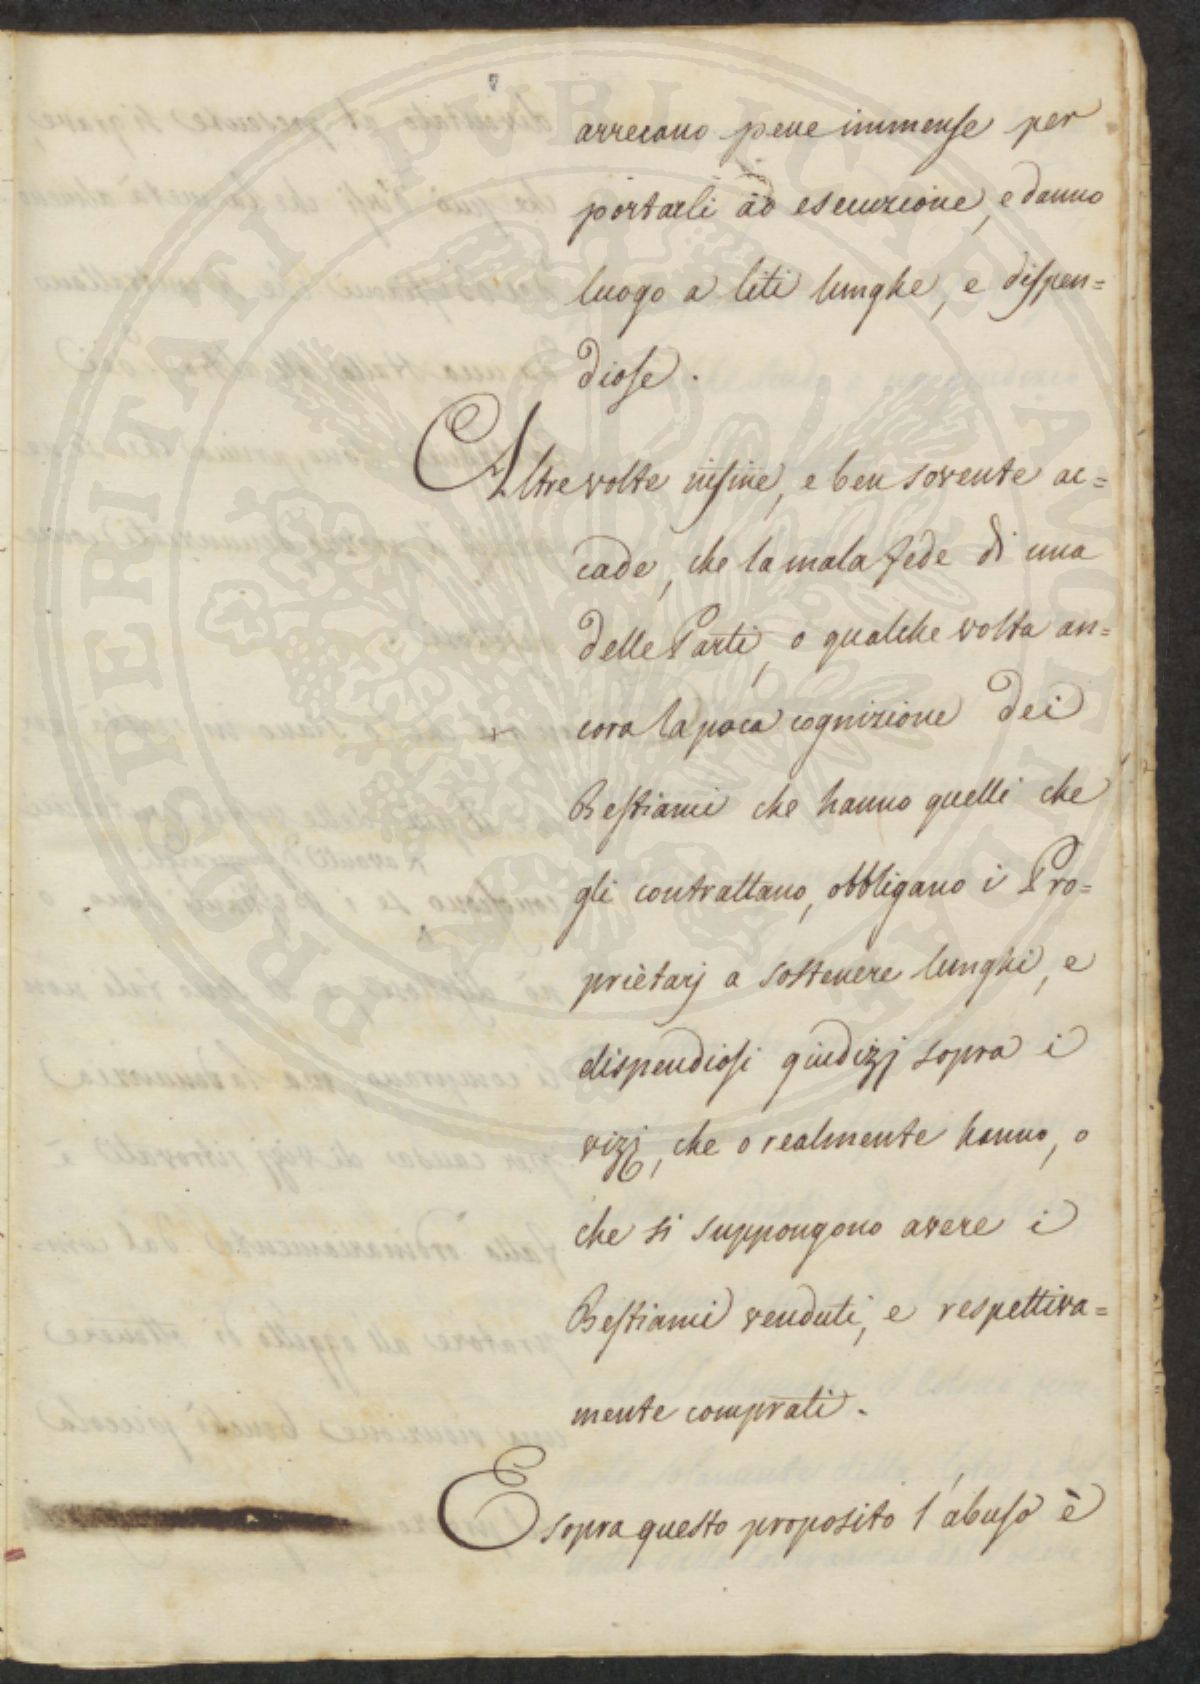 arrecano pene immense per
portarli ad esecuzione, e danno
luogo a liti lunghe, e dispen=
diose.
Altre volte infine, e ben sovente ac=
cade, che la mala fede di una
delle Parti, o qualche volta an=
cora la poca cognizione dei
Bestiami che hanno quelli che
gli contrattano, obbligano i Pro=
prietarj a sostenere lunghi, e
dispendiosi giudizj sopra i
vizj, che o realmente hanno, o
che si suppongono avere i
Bestiami venduti, e respettiva=
mente comprati.
E sopra questo proposito l'abuso è
PROSPERITATI PUBLICAE AUGENDAE